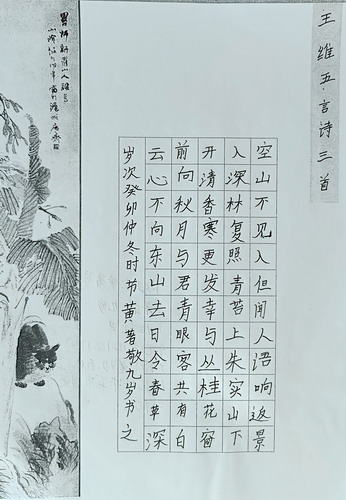 王维五言诗三首
空山不见人但闻人语响返景
入深林复照青苔上朱实山下
开清香寒更发幸与丛桂花窗
前向秋月与君青眼客共有白
云心不向东山去日令春草深
岁次癸卯仲冬时节黄著敬九岁书之